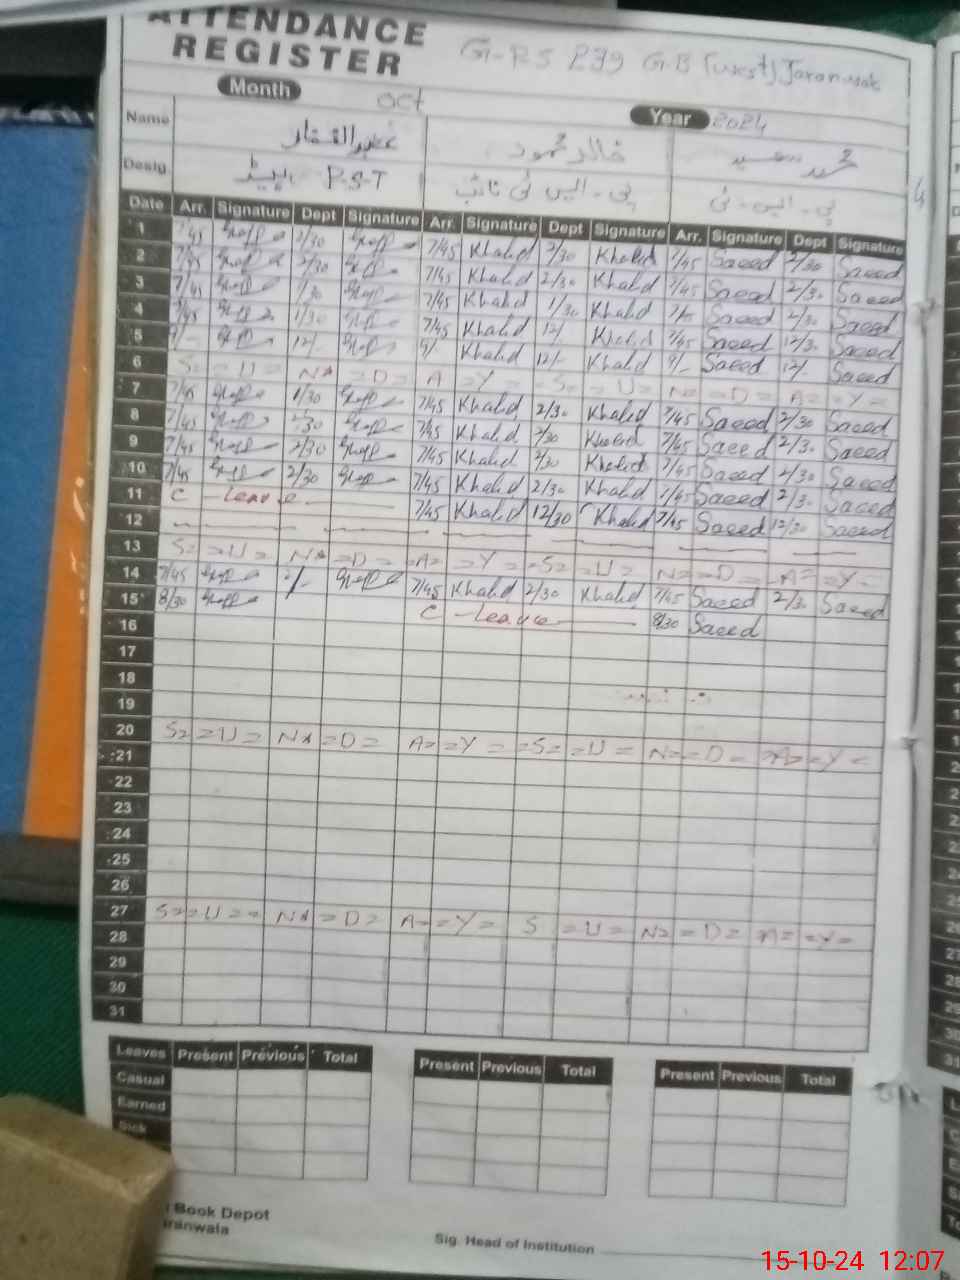 ATTENDANCE
REGISTER
G-PS 239 G.B (West) Jaranwala
Month Oct
Year 2024
Name عبدالغفار خالد محمود محمد سعید
Desig. ہیڈ P-S-T پی - ایس ٹی نائب پی - ایس - ٹی
Date Arr. Signature Dept Signature Arr. Signature Dept Signature Arr. Signature Dept Signature
1 7/45 2/30 7/45 Khalid 2/30 Khalid 7/45 Saeed 2/30 Saeed
2 7/45 2/30 7/45 Khalid 2/30 Khalid 7/45 Saeed 2/30 Saeed
3 7/45 1/30 7/45 Khalid 1/30 Khalid Saeed 2/30 Saeed
4 7/45 1/30 7/45 Khalid 12/ Khalid 7/45 Saeed 12/30 Saeed
5 9/- 12/- 9/ Khalid 12/- Khalid 9/- Saeed 12/ Saeed
6 S = U = N = D = A = Y = S = U = N = D = A = Y =
7 7/45 1/30 7/45 Khalid 2/30 Khalid 7/45 Saeed 2/30 Saeed
8 7/45 7/45 Khalid 2/30 Khalid 7/45 Saeed 2/30 Saeed
9 7/45 2/30 7/45 Khalid 2/30 Khalid 7/45 Saeed 2/30 Saeed
10 7/45 2/30 7/45 Khalid 2/30 Khalid 7/45 Saeed 2/30 Saeed
11 C - leave 7/45 Khalid 12/30 Khalid 7/45 Saeed 12/30 Saeed
12
13 S = U = N = D = A = Y = S = U = N = D = A = Y =
14 7/45 2/- 7/45 Khalid 2/30 Khalid 7/45 Saeed 2/30 Saeed
15 8/30 C - leave 8/30 Saeed
16
17
18
19
20 S = U = N = D = A = Y = S = U = N = D = A = Y =
21
22
23
24
25
26
27 S = U = N = D = A = Y = S = U = N = D = A = Y =
28
29
30
31
Leaves Present Previous Total Present Previous Total Present Previous Total
Casual
Earned
Sick
Book Depot
Sig. Head of Institution
15-10-24 12:07